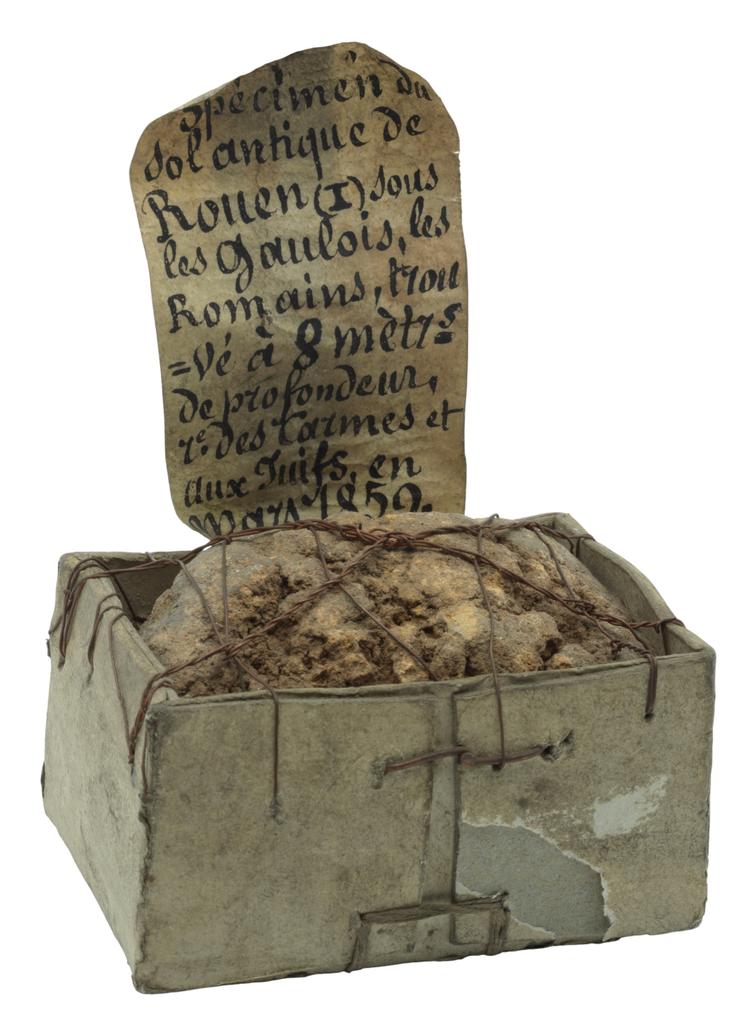 Spécimen du
sol antique de
Rouen (I) sous
les Gaulois, les
Romains, trou
=vé à 8 mètrs
de profondeur,
re. des Carmes et
aux Juifs, en
mars 1859.